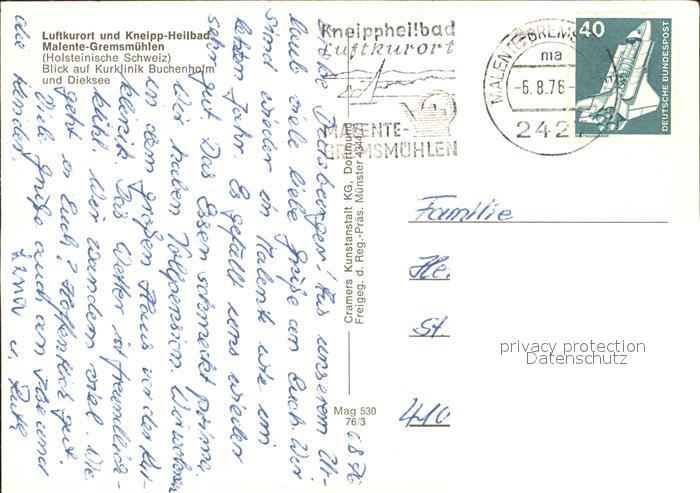 Luftkurort und Kneipp-Heilbad
Malente-Gremsmühlen
(Holsteinische Schweiz)
Blick auf Kurklinik Buchenholm
und Dieksee
Kneippheilbad
Luftkurort
MALENTE-
GREMSMÜHLEN
MALENTE-GREMSM
ma
-6.8.76-
242
40
DEUTSCHE BUNDESPOST
6.8.76
Liebe! Aus unserem Ur-
laub viele liebe Grüße an Euch. Wir
sind wieder in Malente wie im
letzten Jahr. Es gefällt uns wieder
sehr gut. Das Essen schmeckt prima.
Wir haben Vollpension. Wir wohnen
in dem großen Haus vor der Kur-
klinik. Das Wetter ist freundlich -
kühl. Wir wandern viel. Wie
geht es Euch? Hoffentlich gut.
Viele Grüße auch an und
die Kinder.
Erna u.
Cramers Kunstanstalt KG, Dortmund
Freigeg. d. Reg.-Präs. Münster
Mag 530
76/3
Familie
He
St.
410
privacy protection
Datenschutz